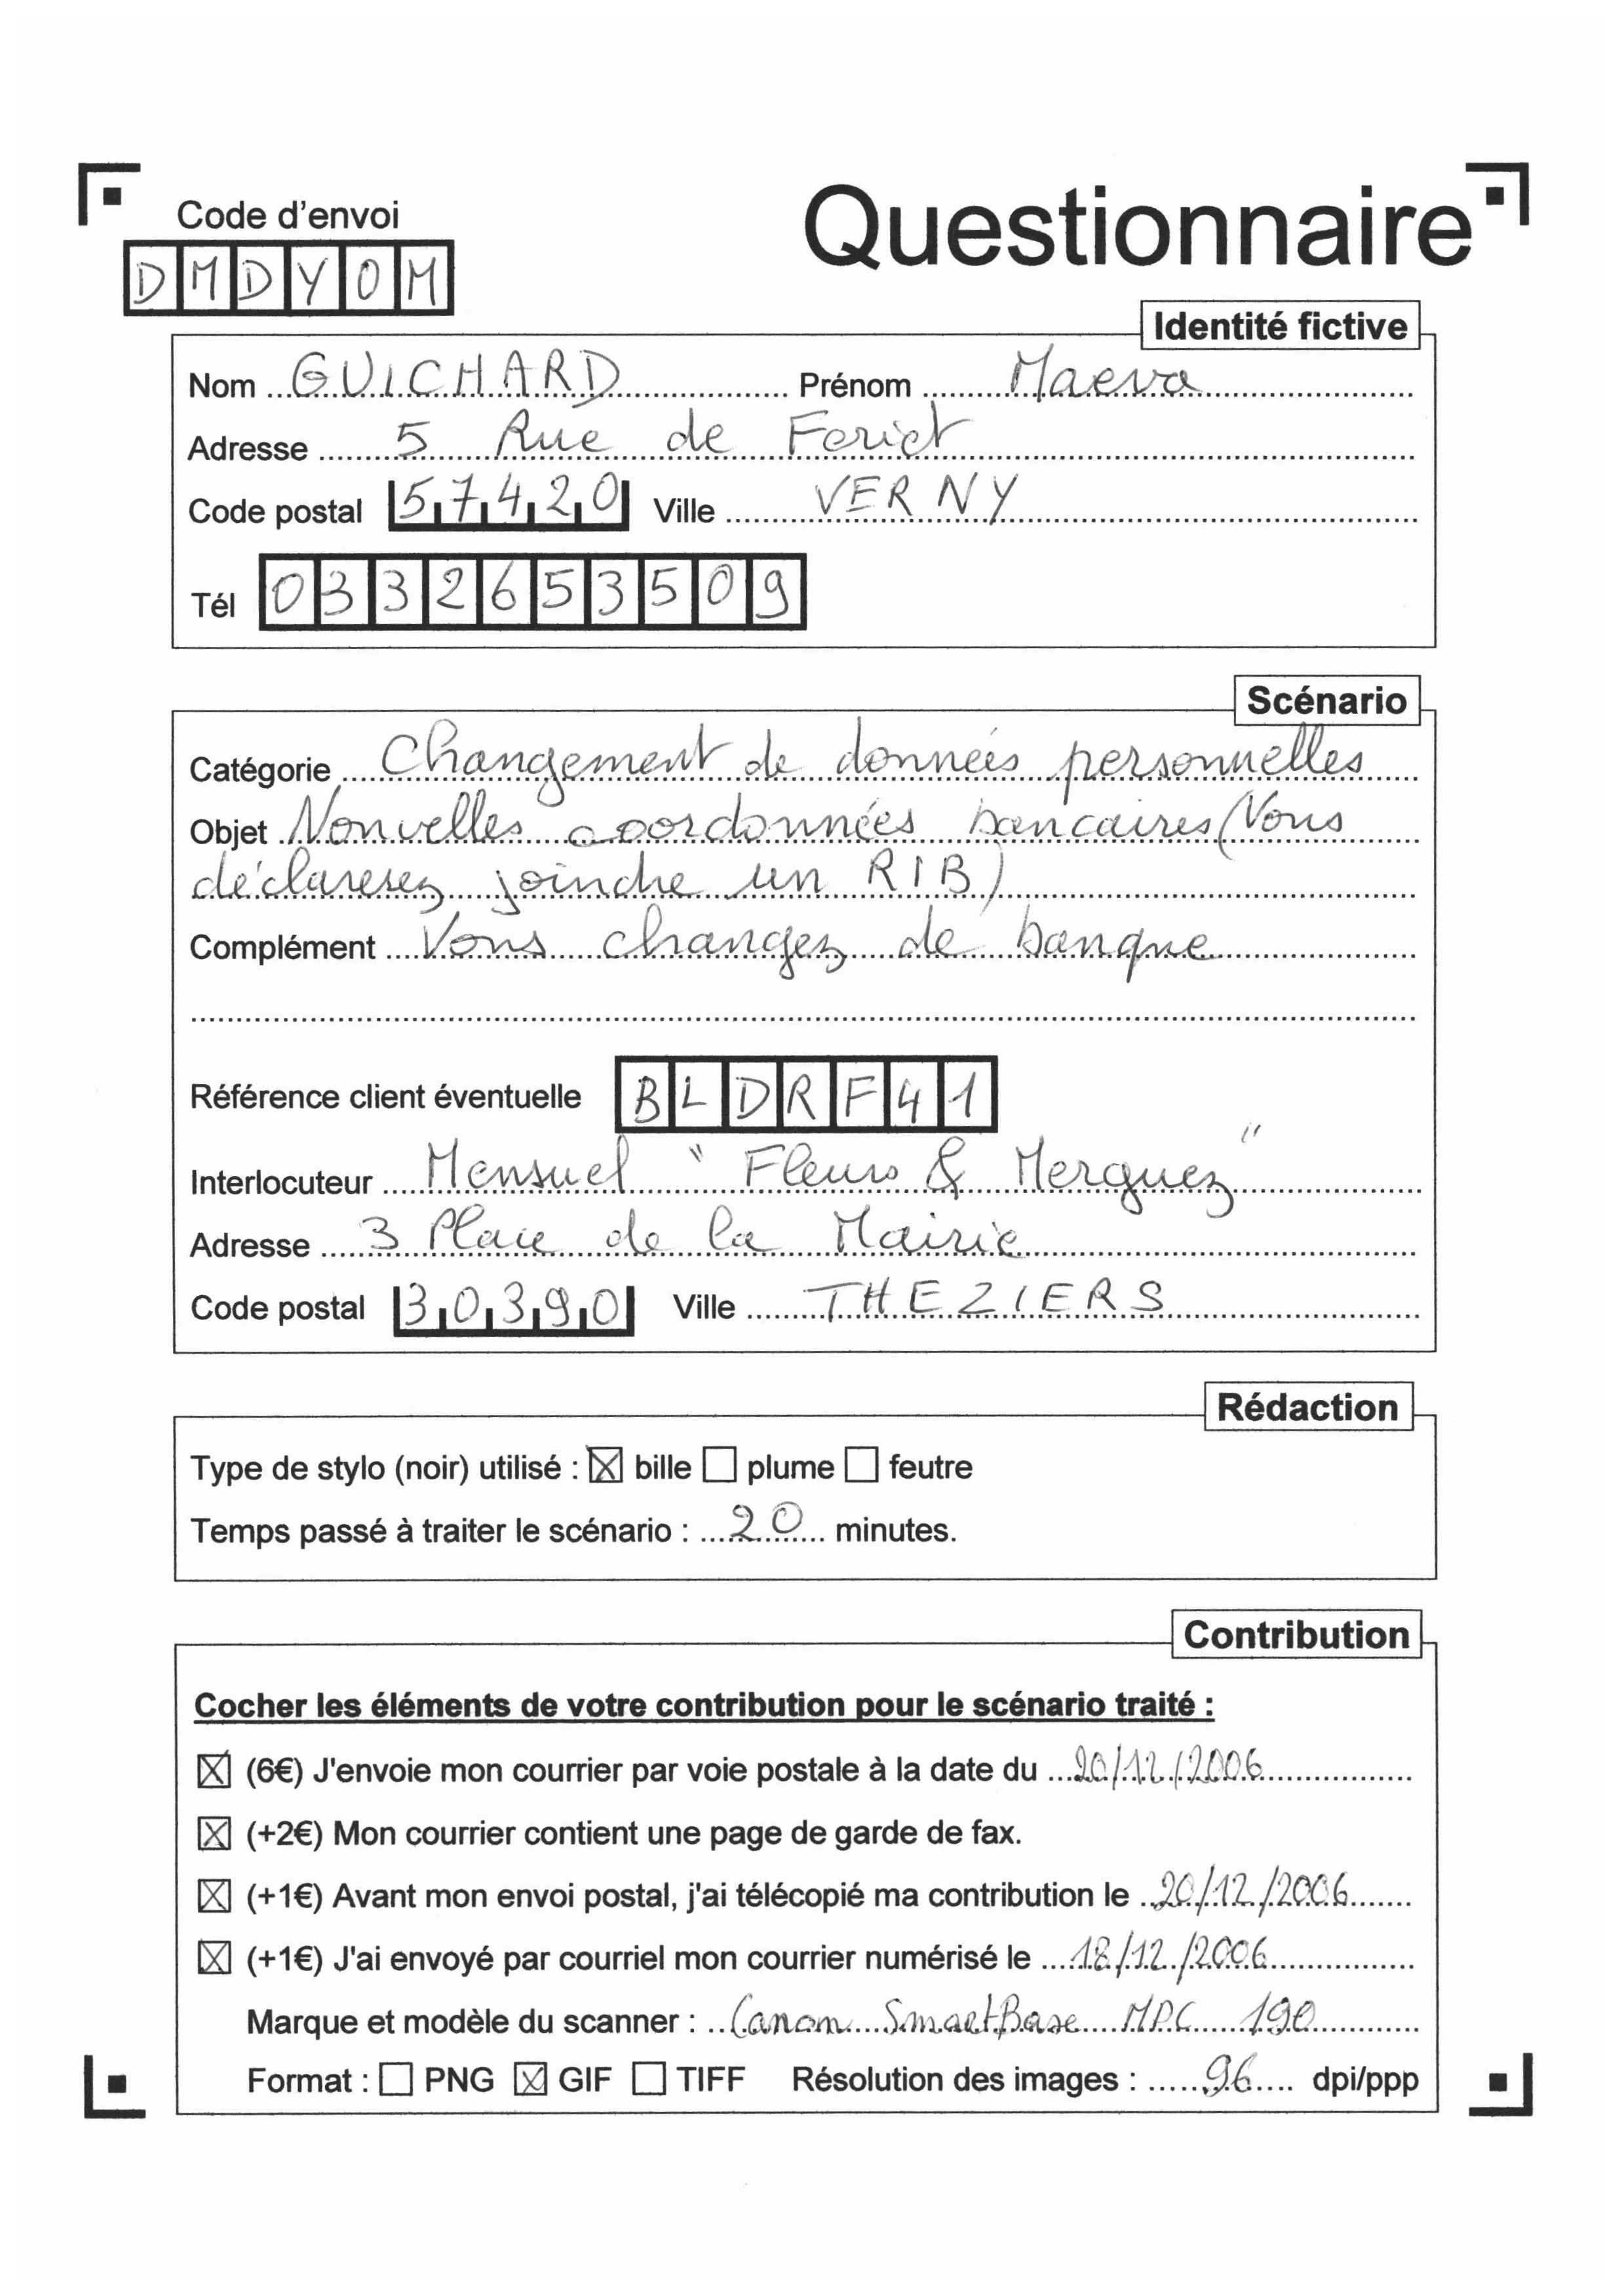 Code d'envoi
Questionnaire
DMDYOM
Identité fictive
Nom GUICHARD Prénom Maeva
Adresse 5 Rue de Feriet
Code postal 57420 Ville VERNY
Tél 0332653509
Scénario
Catégorie Changement de données personnelles
Objet Nouvelles coordonnées bancaires (Vous
déclarerez joindre un RIB)
Complément Vous changez de banque
Référence client éventuelle BLDRF41
Interlocuteur Mensuel "Fleurs & Merguez"
Adresse 3 Place de la Mairie
Code postal 30390 Ville THEZIERS
Rédaction
Type de stylo (noir) utilisé : ☒ bille ☐ plume ☐ feutre
Temps passé à traiter le scénario : 20 minutes.
Contribution
Cocher les éléments de votre contribution pour le scénario traité :
☒ (6€) J'envoie mon courrier par voie postale à la date du 20/12/2006
☒ (+2€) Mon courrier contient une page de garde de fax.
☒ (+1€) Avant mon envoi postal, j'ai télécopié ma contribution le 20/12/2006
☒ (+1€) J'ai envoyé par courriel mon courrier numérisé le 18/12/2006
Marque et modèle du scanner : Canon SmartBase MPC 190
Format : ☐ PNG ☒ GIF ☐ TIFF Résolution des images : 96 dpi/ppp